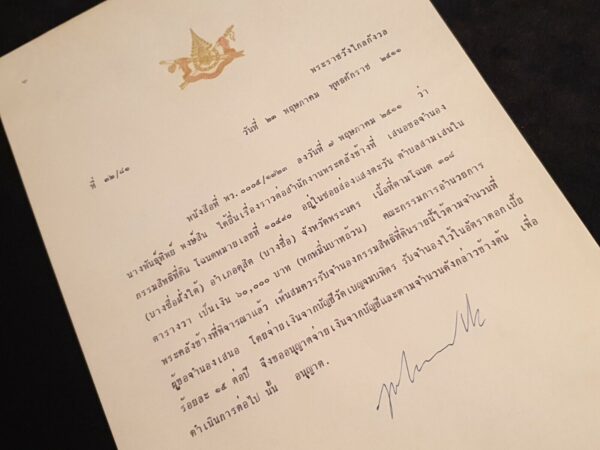 พระราชวังไกลกังวล
วันที่ ๒๓ พฤษภาคม พุทธศักราช ๒๕๑๑
ที่ ๓๒/๘๑
หนังสือที่ พว. ๐๐๐๕/๑๗๒๓ ลงวันที่ ๗ พฤษภาคม ๒๕๑๑ ว่า
นางพันธุ์ทิพย์ พงษ์ธัน ได้ยื่นเรื่องราวต่อสำนักงานพระคลังข้างที่ เสนอขอจำนอง
กรรมสิทธิ์ที่ดิน โฉนดหมายเลขที่ ๑๐๔๙๐ อยู่ในซอยช่องแสงตะวัน ตำบลสามเสนใน
(บางซื่อฝั่งใต้) อำเภอดุสิต (บางซื่อ) จังหวัดพระนคร เนื้อที่ตามโฉนด ๑๐๘
ตารางวา เป็นเงิน ๖๐,๐๐๐ บาท (หกหมื่นบาทถ้วน) คณะกรรมการอำนวยการ
พระคลังข้างที่พิจารณาแล้ว เห็นสมควรรับจำนองกรรมสิทธิ์ที่ดินรายนี้ไว้ตามจำนวนที่
ผู้ขอจำนองเสนอ โดยจ่ายเงินจากบัญชีวัดเบญจมบพิตร รับจำนองไว้ในอัตราดอกเบี้ย
ร้อยละ ๑๕ ต่อปี จึงขออนุญาตจ่ายเงินจากบัญชีและตามจำนวนดังกล่าวข้างต้น เพื่อ
ดำเนินการต่อไป นั้น อนุญาต.